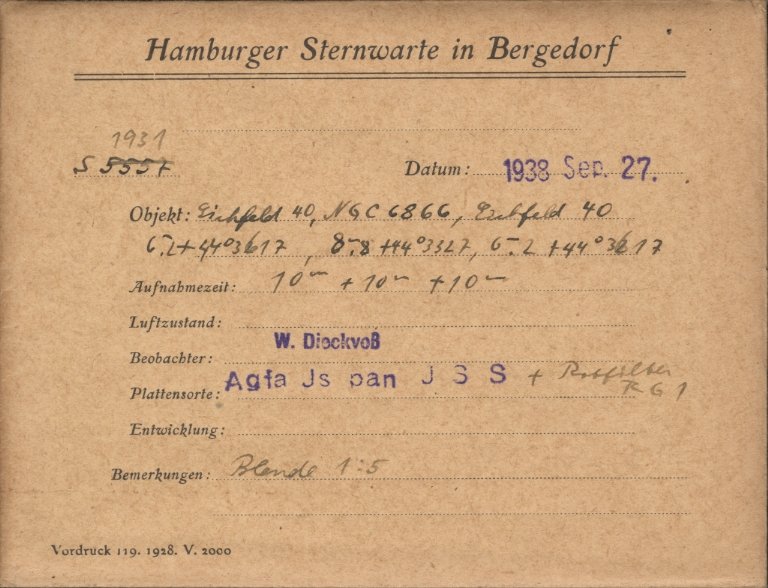 Hamburger Sternwarte in Bergedorf
1931
S 5557
Datum: 1938 Sep. 27.
Objekt: Eichfeld 40, NGC 6866, Eichfeld 40
6.2 +44°3617, 8.8 +44°3327, 6.2 +44°3617
Aufnahmezeit: 10m + 10m + 10m
Luftzustand:
Beobachter: W. Dieckvoß
Plattensorte: Agfa Js pan J S S + Rotfilter
RG 1
Entwicklung:
Bemerkungen: Blende 1:5
Vordruck 119. 1928. V. 2000